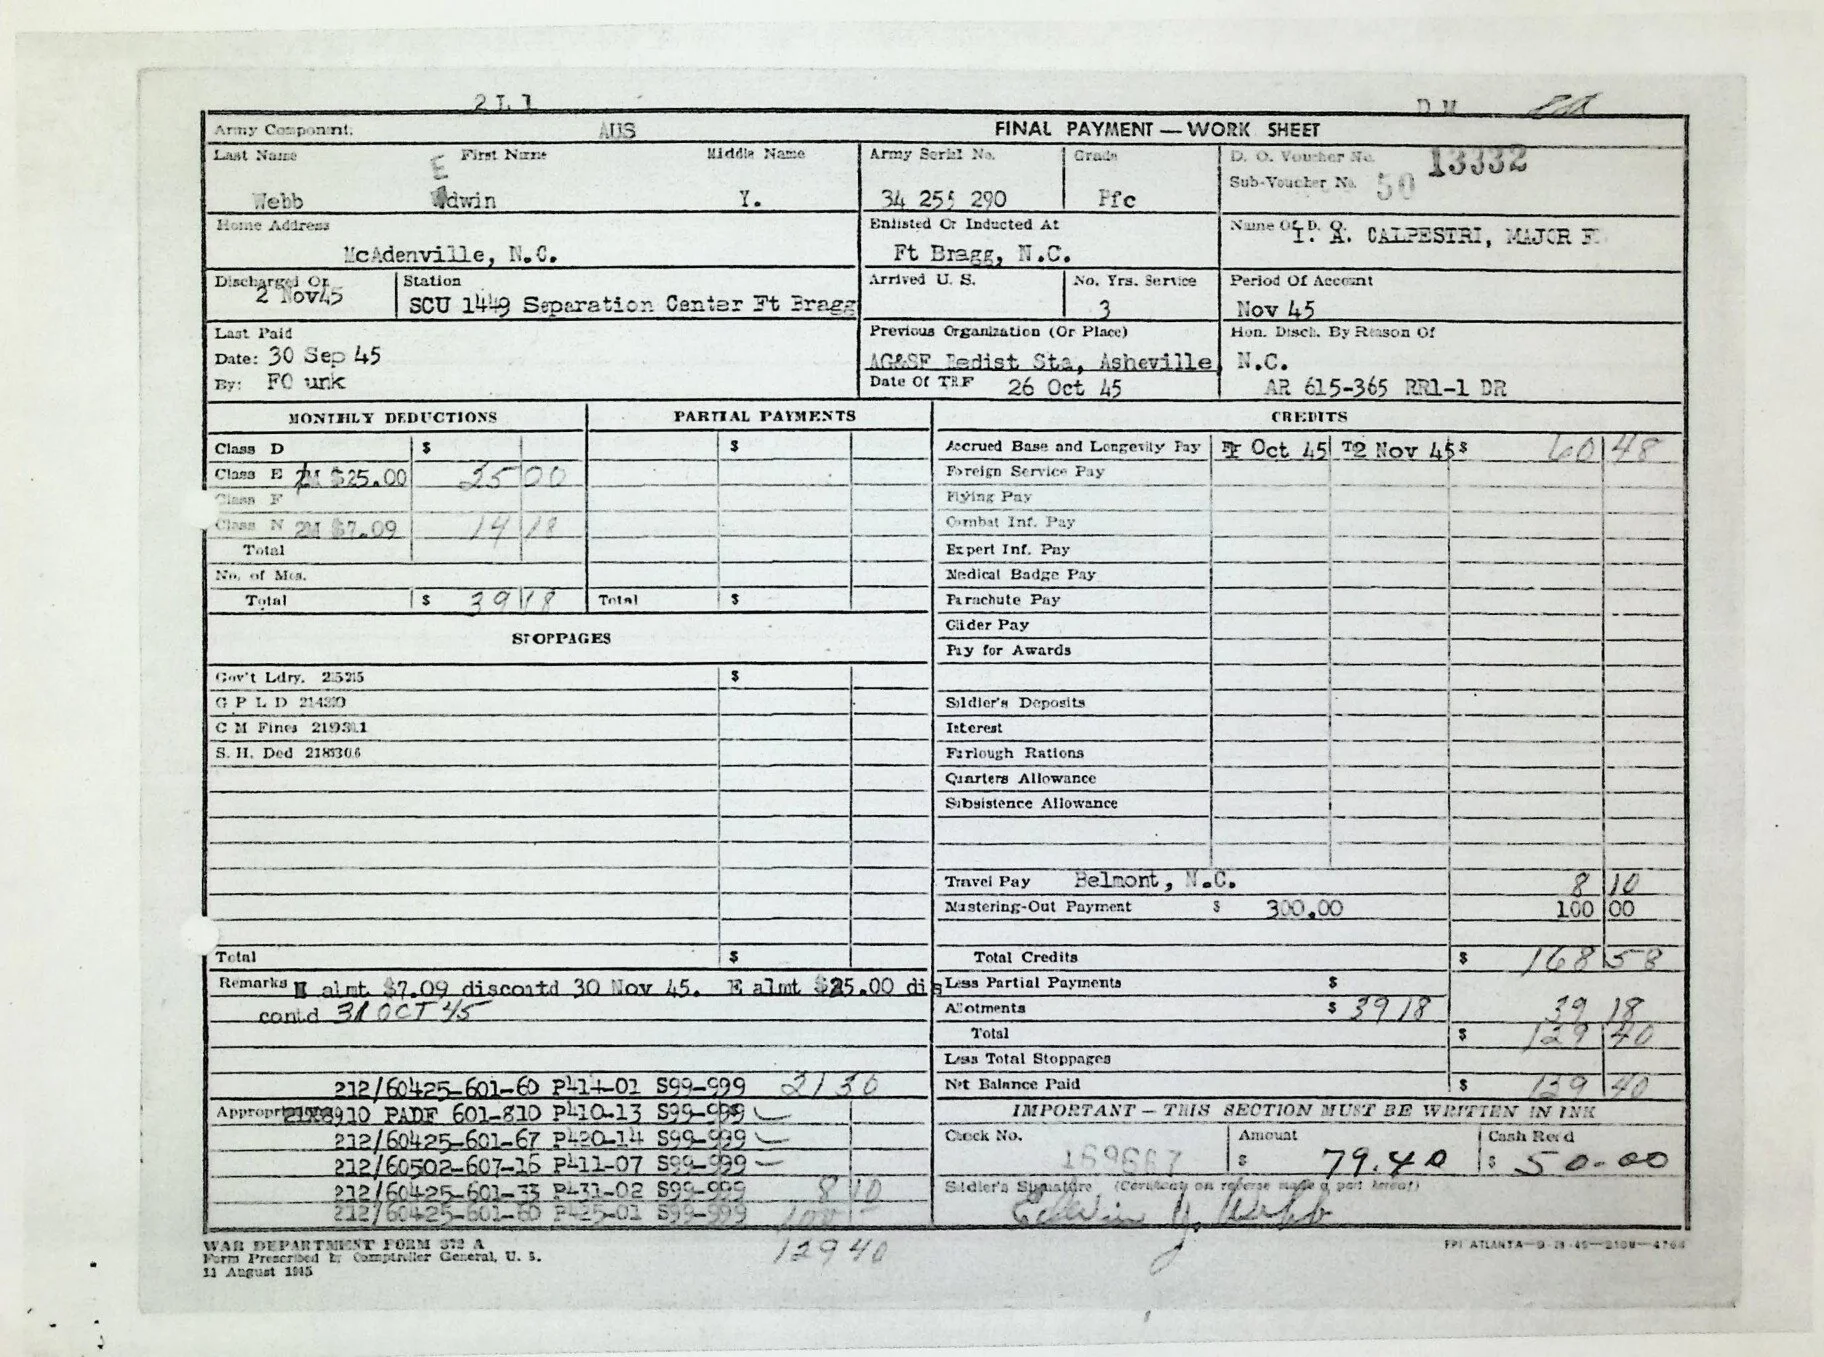 2 L 1 D M
Army Component: AUS FINAL PAYMENT — WORK SHEET
Last Name First Name Middle Name Army Serial No. Grade D. O. Voucher No. 13332
E
Webb dwin Y. 34 255 290 Pfc Sub-Voucher No. 50
Home Address Enlisted Or Inducted At Name Of D. O.
McAdenville, N.C. Ft Bragg, N.C. CALPESTRI, MAJOR
Discharged On Station Arrived U. S. No. Yrs. Service Period Of Account
2 Nov45 SCU 1449 Separation Center Ft Bragg 3 Nov 45
Last Paid Previous Organization (Or Place) Hon. Disch. By Reason Of
Date: 30 Sep 45 AG&SF Redist Sta, Asheville N.C.
By: FO unk Date Of TRF 26 Oct 45 AR 615-365 RR1-1 DR
MONTHLY DEDUCTIONS PARTIAL PAYMENTS CREDITS
Class D $ $ Accrued Base and Longevity Pay Fr Oct 45 To2 Nov 45 $ 60 48
Class E $25.00 25 00 Foreign Service Pay
Class F Flying Pay
Class N 2M $7.09 14 18 Combat Inf. Pay
Total Expert Inf. Pay
No. of Mos. Medical Badge Pay
Total $ 39 18 Total $ Parachute Pay
Glider Pay
STOPPAGES
Pay for Awards
Gov't Ldry. 21525 $
G P L D Soldier's Deposits
C M Fines Interest
S. H. Ded Furlough Rations
Quarters Allowance
Subsistence Allowance
Travel Pay Belmont, N.C. 8 10
Mustering-Out Payment $ 300.00 100 00
Total $ Total Credits $ 168 58
Remarks N almt $7.09 discontd 30 Nov 45. E almt $25.00 dis Less Partial Payments $
contd 31 OCT 45 Allotments $ 39 18 39 18
Total $ 129 40
Less Total Stoppages
212/60425-601-60 P414-01 S99-999 21 30 Net Balance Paid $ 129 40
Appropriations PADF 601-810 P410-13 S99-999 IMPORTANT — THIS SECTION MUST BE WRITTEN IN INK
212/60425-601-67 P420-14 S99-999 Check No. Amount Cash Rec'd
212/60502-607-15 P411-07 S99-999 169667 $ 79.40 $ 50.00
212/60425-601-33 P431-02 S99-999 8 10 Soldier's Signature (Certificate on reverse made a part hereof)
212/60425-601-60 P425-01 S99-999 100 Edwin Y. Webb
129 40
WAR DEPARTMENT FORM 372 A
Form Prescribed by Comptroller General, U. S.
11 August 1945
FPI ATLANTA